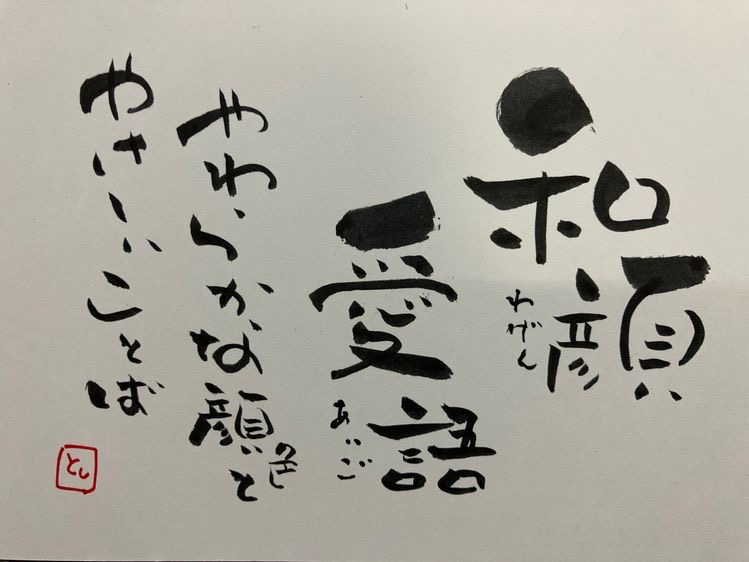 和顔
わげん
愛語
あいご
やわらかな顔と
やさしいことば
とし